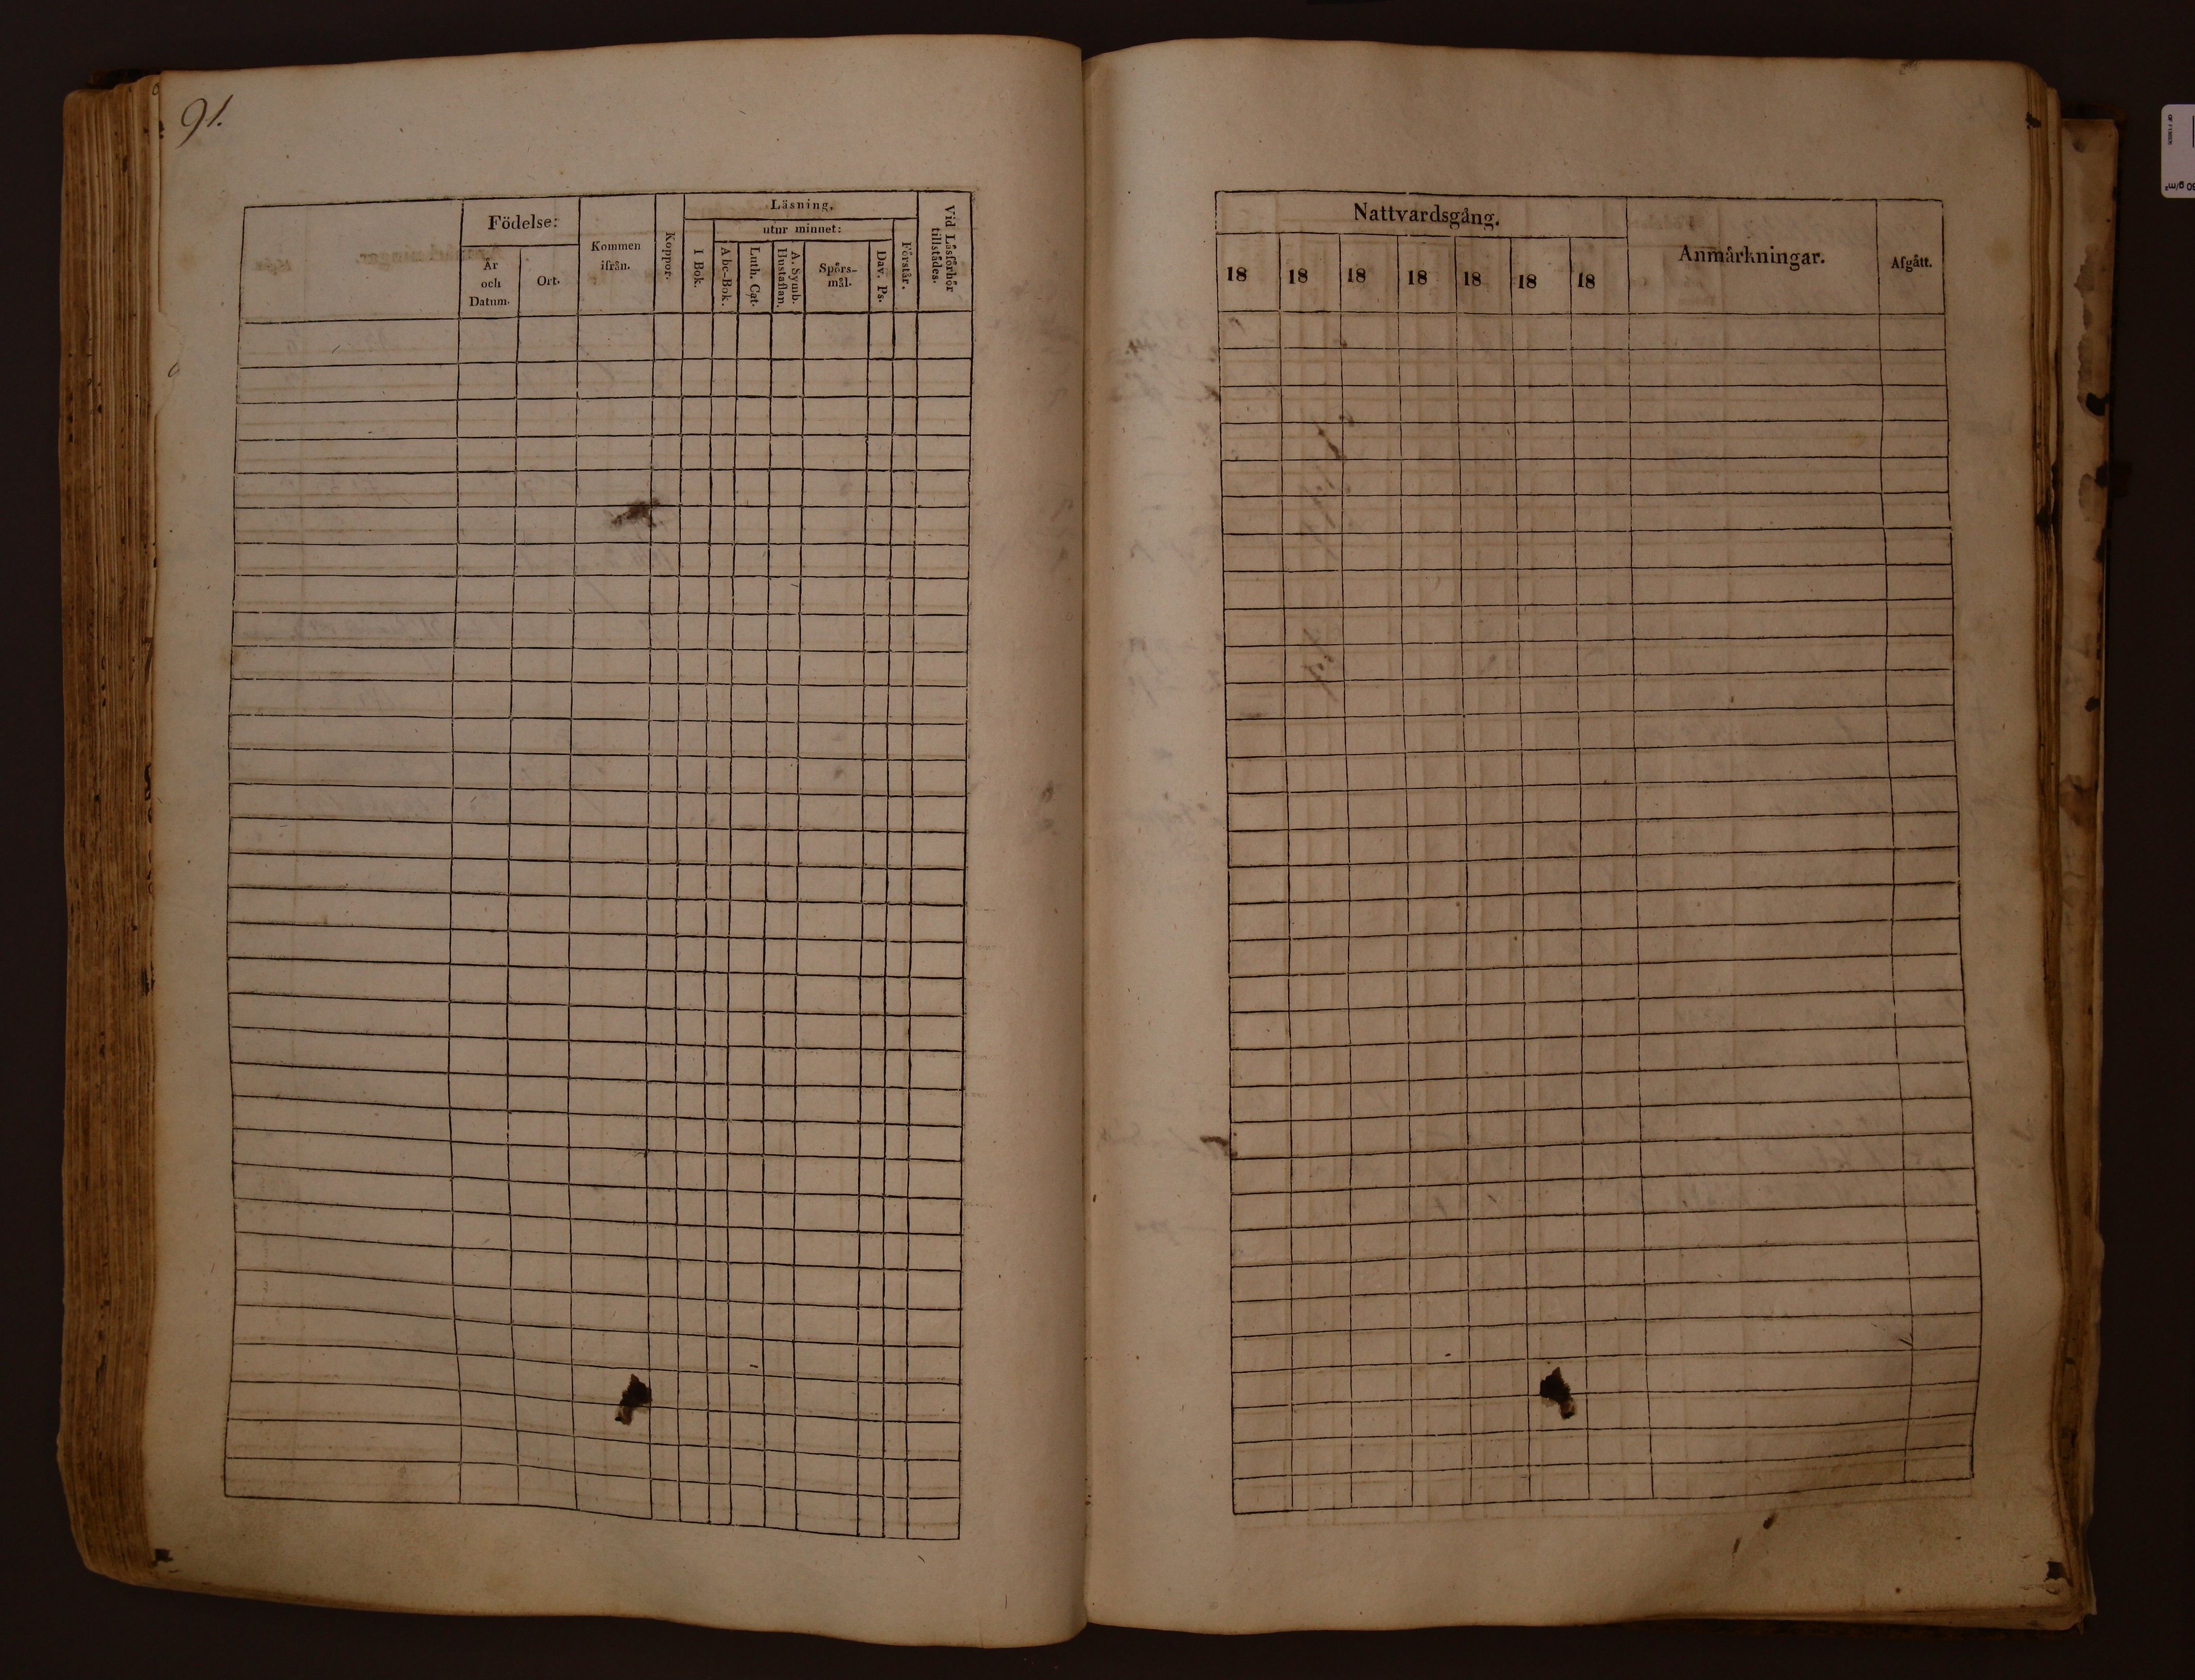 91.
Födelse:
År
och
Datum.
Ort.
Kommen
ifrån.
Koppor.
Läsning.
utur minnet:
I Bok.
Abc-Bok.
Luth. Cat.
A. Symb.
Hustaflan.
Spörs-
mål.
Dav. Ps.
Förstår.
Vid Läsförhör
tillstädes.
Nattvardsgång.
18 18 18 18 18 18 18
Anmärkningar.
Afgått.